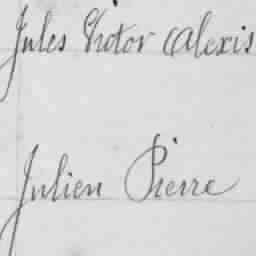 Jules Victor Alexis
Julien Pierre